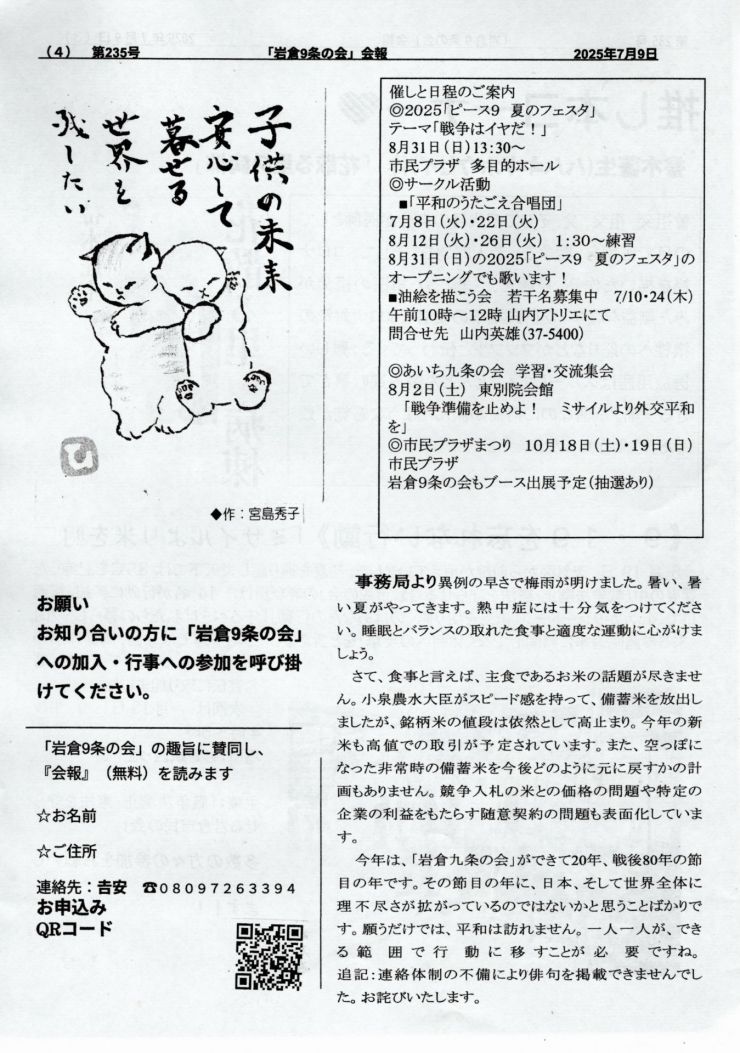 （4）　第235号　「岩倉9条の会」会報　2025年7月9日
子供の未来
安心して
暮せる
世界を
残したい
◆作：宮島秀子
催しと日程のご案内
◎2025「ピース9　夏のフェスタ」
テーマ「戦争はイヤだ！」
8月31日（日）13:30～
市民プラザ　多目的ホール
◎サークル活動
■「平和のうたごえ合唱団」
7月8日（火）・22日（火）
8月12日（火）・26日（火）　1：30～練習
8月31日（日）の2025「ピース9　夏のフェスタ」の
オープニングでも歌います！
■油絵を描こう会　若干名募集中　7/10・24（木）
午前10時～12時 山内アトリエにて
問合せ先　山内英雄（37-5400）
◎あいち九条の会　学習・交流集会
8月2日（土）　東別院会館
「戦争準備を止めよ！　ミサイルより外交平和
を」
◎市民プラザまつり　10月18日（土）・19日（日）
市民プラザ
岩倉9条の会もブース出展予定（抽選あり）
お願い
お知り合いの方に「岩倉9条の会」
への加入・行事への参加を呼び掛
けてください。
「岩倉9条の会」の趣旨に賛同し、
『会報』（無料）を読みます
☆お名前
☆ご住所
連絡先：吉安　☎08097263394
お申込み
QRコード
事務局より 異例の早さで梅雨が明けました。暑い、暑
い夏がやってきます。熱中症には十分気をつけてくださ
い。睡眠とバランスの取れた食事と適度な運動に心がけま
しょう。
さて、食事と言えば、主食であるお米の話題が尽きませ
ん。小泉農水大臣がスピード感を持って、備蓄米を放出し
ましたが、銘柄米の値段は依然として高止まり。今年の新
米も高値での取引が予定されています。また、空っぽに
なった非常時の備蓄米を今後どのように元に戻すかの計
画もありません。競争入札の米との価格の問題や特定の
企業の利益をもたらす随意契約の問題も表面化していま
す。
今年は、「岩倉九条の会」ができて20年、戦後80年の節
目の年です。その節目の年に、日本、そして世界全体に
理不尽さが拡がっているのではないかと思うことばかりで
す。願うだけでは、平和は訪れません。一人一人が、でき
る範囲で行動に移すことが必要ですね。
追記：連絡体制の不備により俳句を掲載できませんでし
た。お詫びいたします。